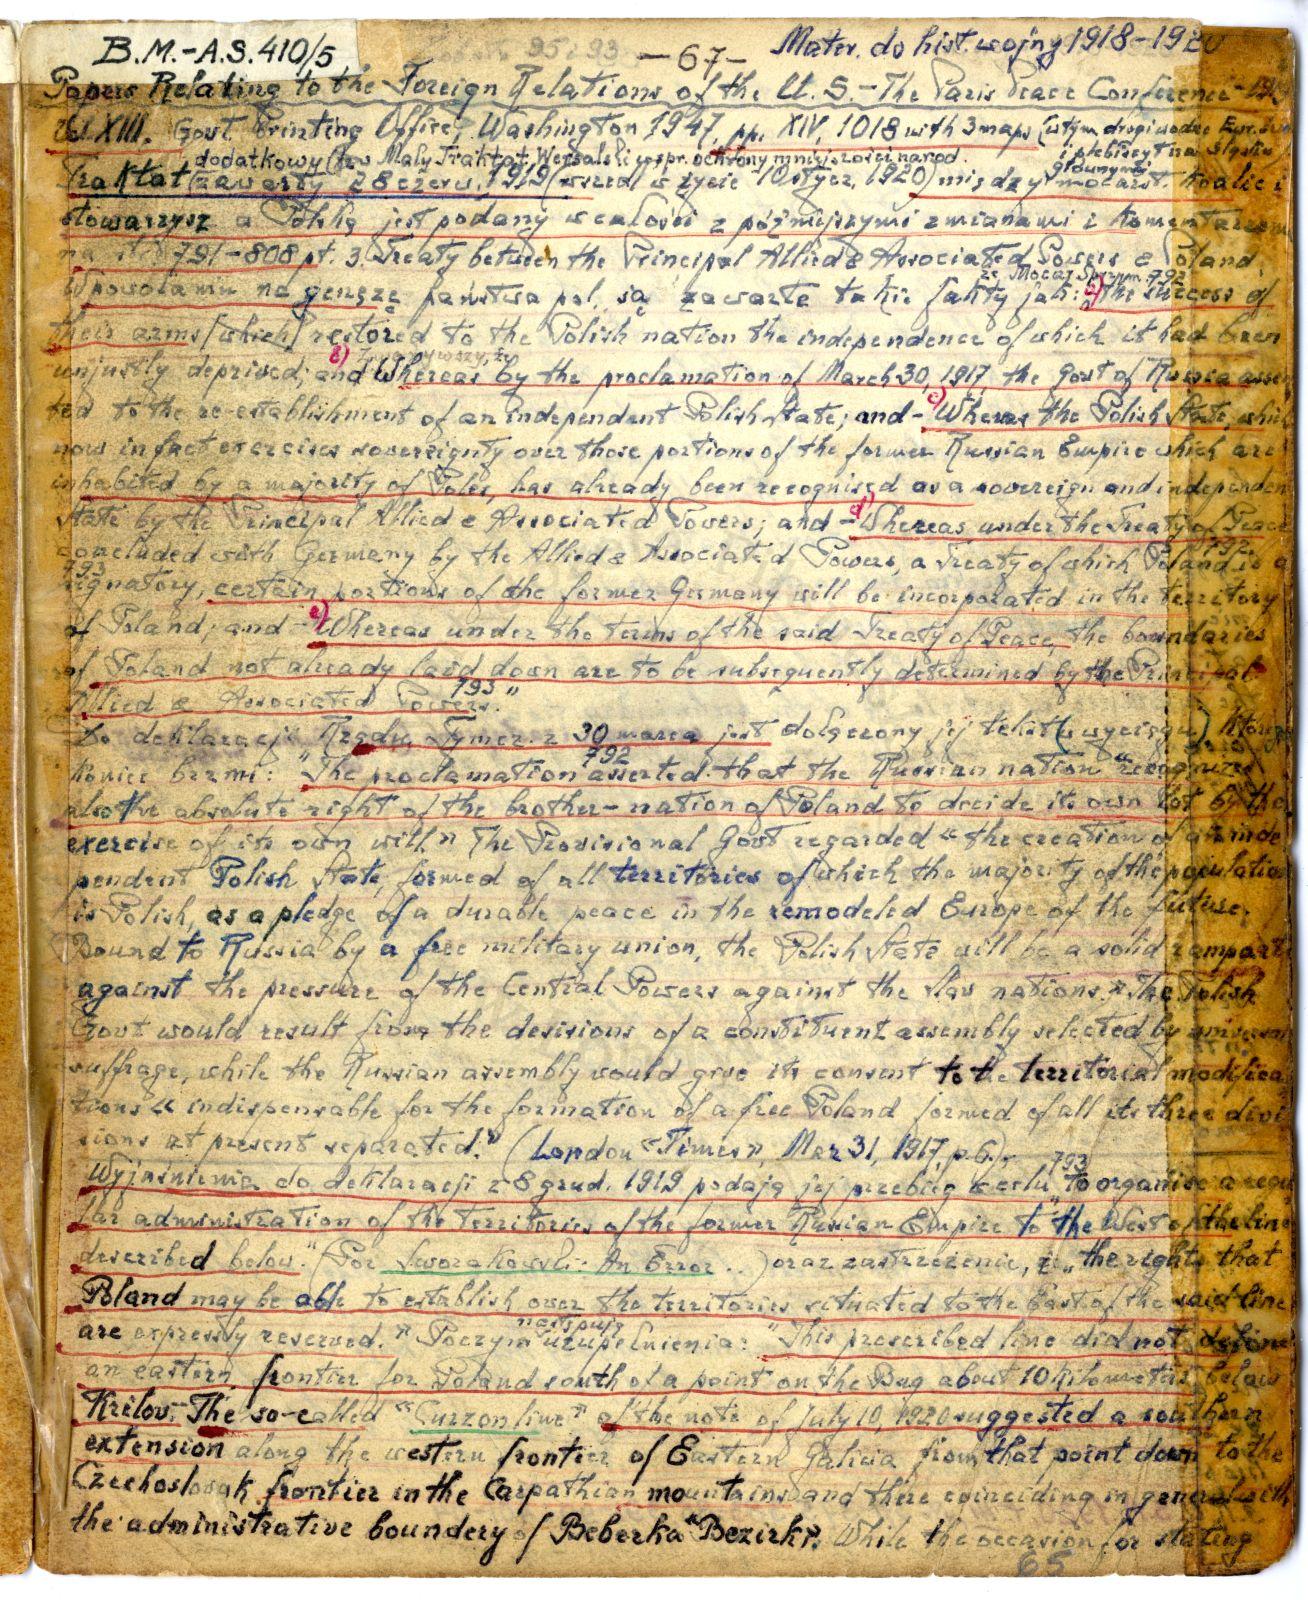 B.M.-A.S. 410/5
-67-
Mater. do hist. wojny 1918-1920
Papers Relating to the Foreign Relations of the U. S. - The Paris Peace Conference - 1919
vol. XIII. Govt. Printing Office, Washington 1947, pp. XIV, 1018 with 3 maps (w tym drogi wodne Eur. 
i plebiscyt na Śląsku
dodatkowy (tzw Mały Traktat Wersalski w spr. ochrony mniejszości narod.
głównymi
Traktat zawarty 28 czerw. 1919 (wszedł w życie 10 stycz. 1920) między mocarst. koalic i
stowarzysz a Polską jest podany w całości z późniejszymi zmianami i komentarzem
na str 791-808 pt. 3. Treaty between the Principal Allied & Associated Powers & Poland.
że Mocar. Sprzym. 792
W powołaniu na genezę państwa pol. są zawarte takie fakty jak: a) "the success of
their arms [which] restored to the Polish nation the independence of which it had been
b) Zważywszy, że
unjustly deprived; and Whereas by the proclamation of March 30, 1917, the Govt of Russia assen
ted to the re-establishment of an independent Polish State; and - c) Whereas the Polish State, which
now in fact exercises sovereignty over those portions of the former Russian Empire which are
inhabited by a majority of Poles, has already been recognised as a sovereign and independent
State by the Principal Allied & Associated Powers; and - d) Whereas under the Treaty of Peace
792
concluded with Germany by the Allied & Associated Powers, a Treaty of which Poland is a
793
signatory, certain portions of the former Germany will be incorporated in the territory
of Poland; and - e) Whereas under the terms of the said Treaty of Peace, the boundaries
of Poland not already laid down are to be subsequently determined by the Principal
Allied & Associated Powers. 793"
Do deklaracji Rządu Tymcz. z 30 marca jest dołączony jej tekst (w wyciągu) 
792
końcu brzmi: "The proclamation asserted that the Russian nation "recognizes
also the absolute right of the brother-nation of Poland to decide its own lot by the
exercise of its own will." The Provisional Govt regarded "the creation of an inde
pendent Polish State, formed of all territories of which the majority of the population
is Polish, as a pledge of a durable peace in the remodeled Europe of the future.
Bound to Russia by a free military union, the Polish State will be a solid rampart
against the pressure of the Central Powers against the Slav nations." The Polish
Govt would result from the desisions of a constituent assembly selected by universal
suffrage, while the Russian assembly would give its consent to the territorial modifica
tions "indispensable for the formation of a free Poland formed of all its three divi
sions at present separated." (London "Times", Mar 31, 1917, p. 6.). -
793
Wyjaśnienia do deklaracji z 8 grud. 1919 podają jej przebieg w celu "to organise a regu
lar administration of the territories of the former Russian Empire to the West of the line
described below." (Por Sworakowski: An Error...) oraz zastrzeżenie, że "the rights that
Poland may be able to establish over the territories situated to the East of the said line
następują
are expressly reserved." Poczym uzupełnienia: "This prescribed line did not define
an eastern frontier for Poland south of a point on the Bug about 10 kilometers below
Krilov. The so-called "Curzon line" of the note of July 10, 1920 suggested a southern
extension along the western frontier of Eastern Galicia from that point down to the
Czechoslovak frontier in the Carpathian mountains and there coinciding in general with
the administrative boundery of Beberka "Bezirk". While the occasion for stating
65